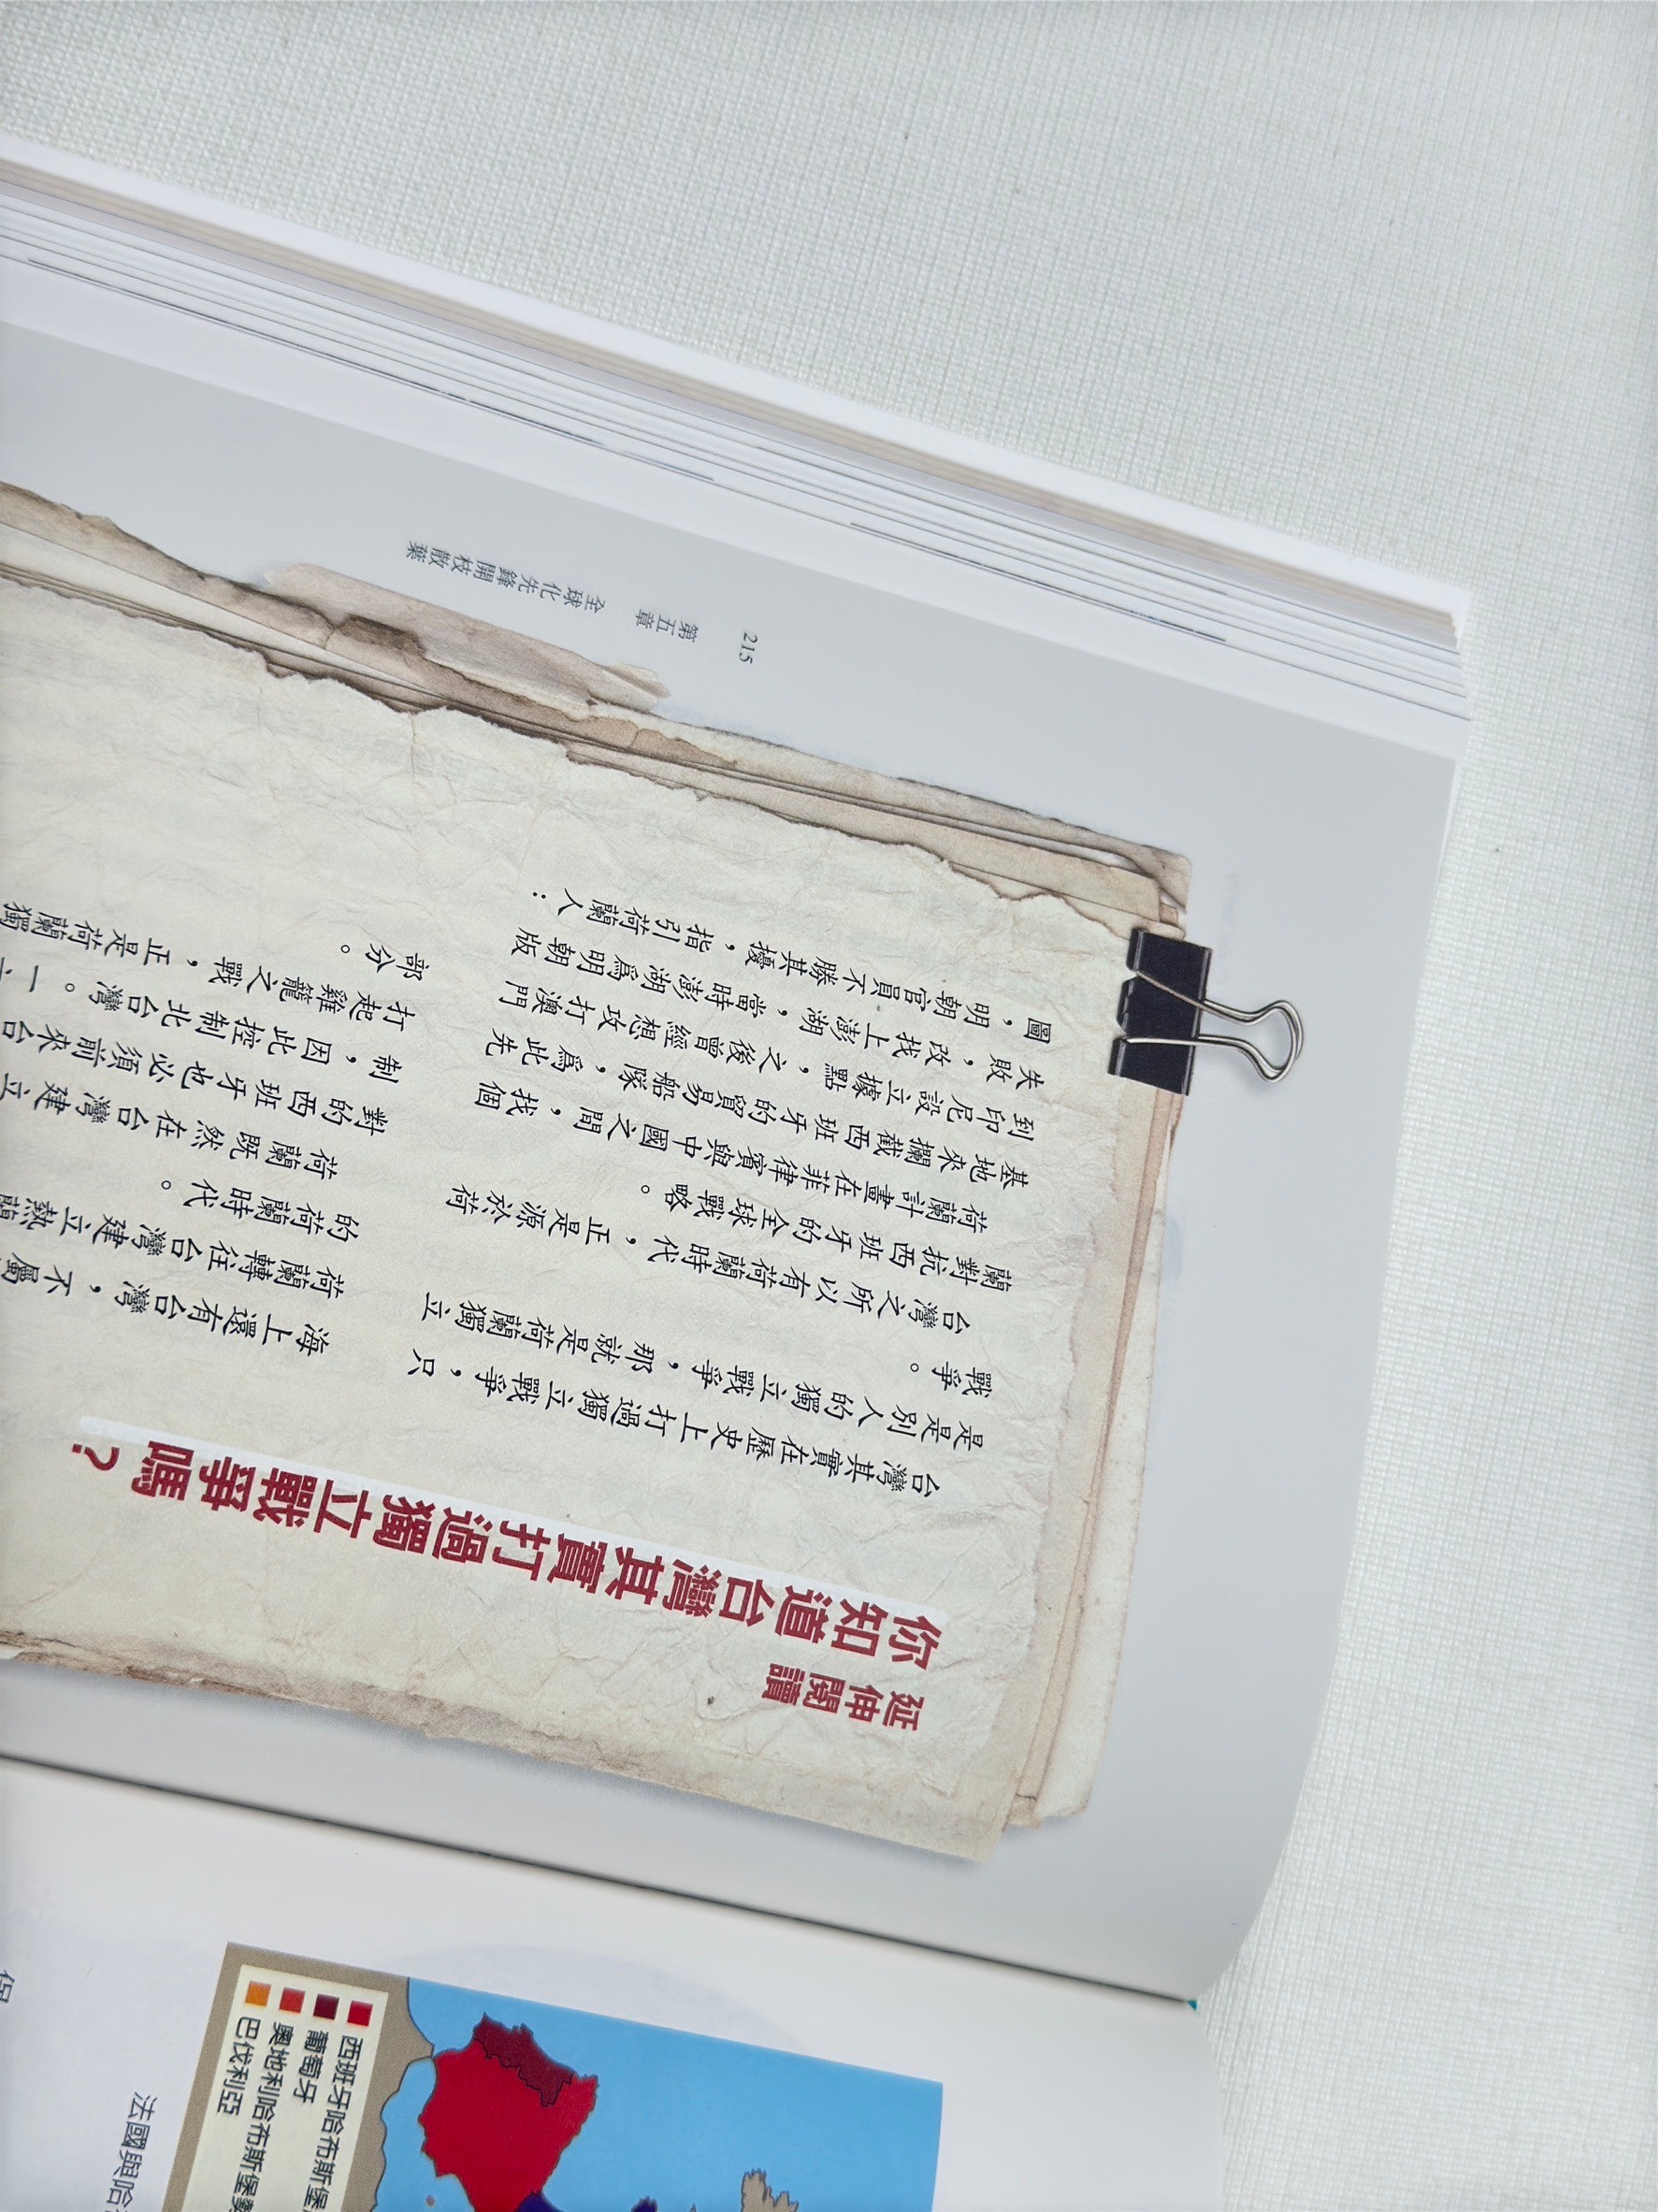 延伸閱讀
你知道台灣其實打過獨立戰爭嗎？
台灣其實在歷史上打過獨立戰爭，只
是是別人的獨立戰爭，那就是荷蘭獨立
戰爭。
台灣之所以有荷蘭時代，正是源於荷
蘭對抗西班牙的全球戰略。
荷蘭計畫在菲律賓與中國之間，找個
基地來攔截西班牙的貿易船隊，為此先
到印尼設立據點，之後曾經想攻打澳門
失敗，改找上澎湖，當時澎湖為明朝版
圖，明朝官員不勝其擾，指引荷蘭人：
海上還有台灣，不屬
荷蘭轉往台灣建立熱蘭
的荷蘭時代。
荷蘭既然在台灣建立
對的西班牙也必須前來台
制，因此控制北台灣。一
打起雞籠之戰，正是荷蘭獨
部分。
215
第五章
全球化先鋒開枝散葉
西班牙哈布斯堡
葡萄牙
奧地利哈布斯堡勢
巴伐利亞
法國與哈